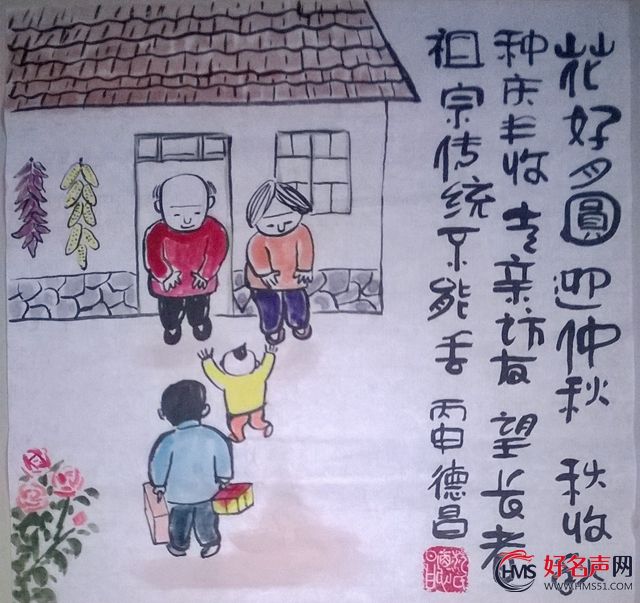 花好月圓迎仲秋 秋收秋
种庆丰收走亲坊友望长者
祖宗传统不能丢 丙申德昌
HMS 好名声网
WWW.HMS51.COM